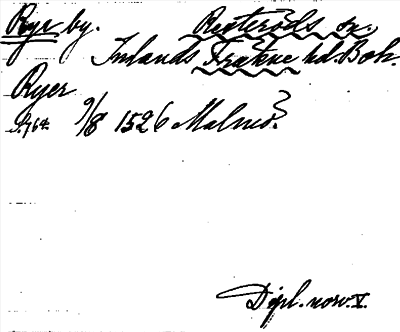 Ryr by. Resteröds sn.
Inlands Fräkne hd. Boh.
Ryer
s. 764. 9/8 1526 Malmö?
Dipl. norv. V.